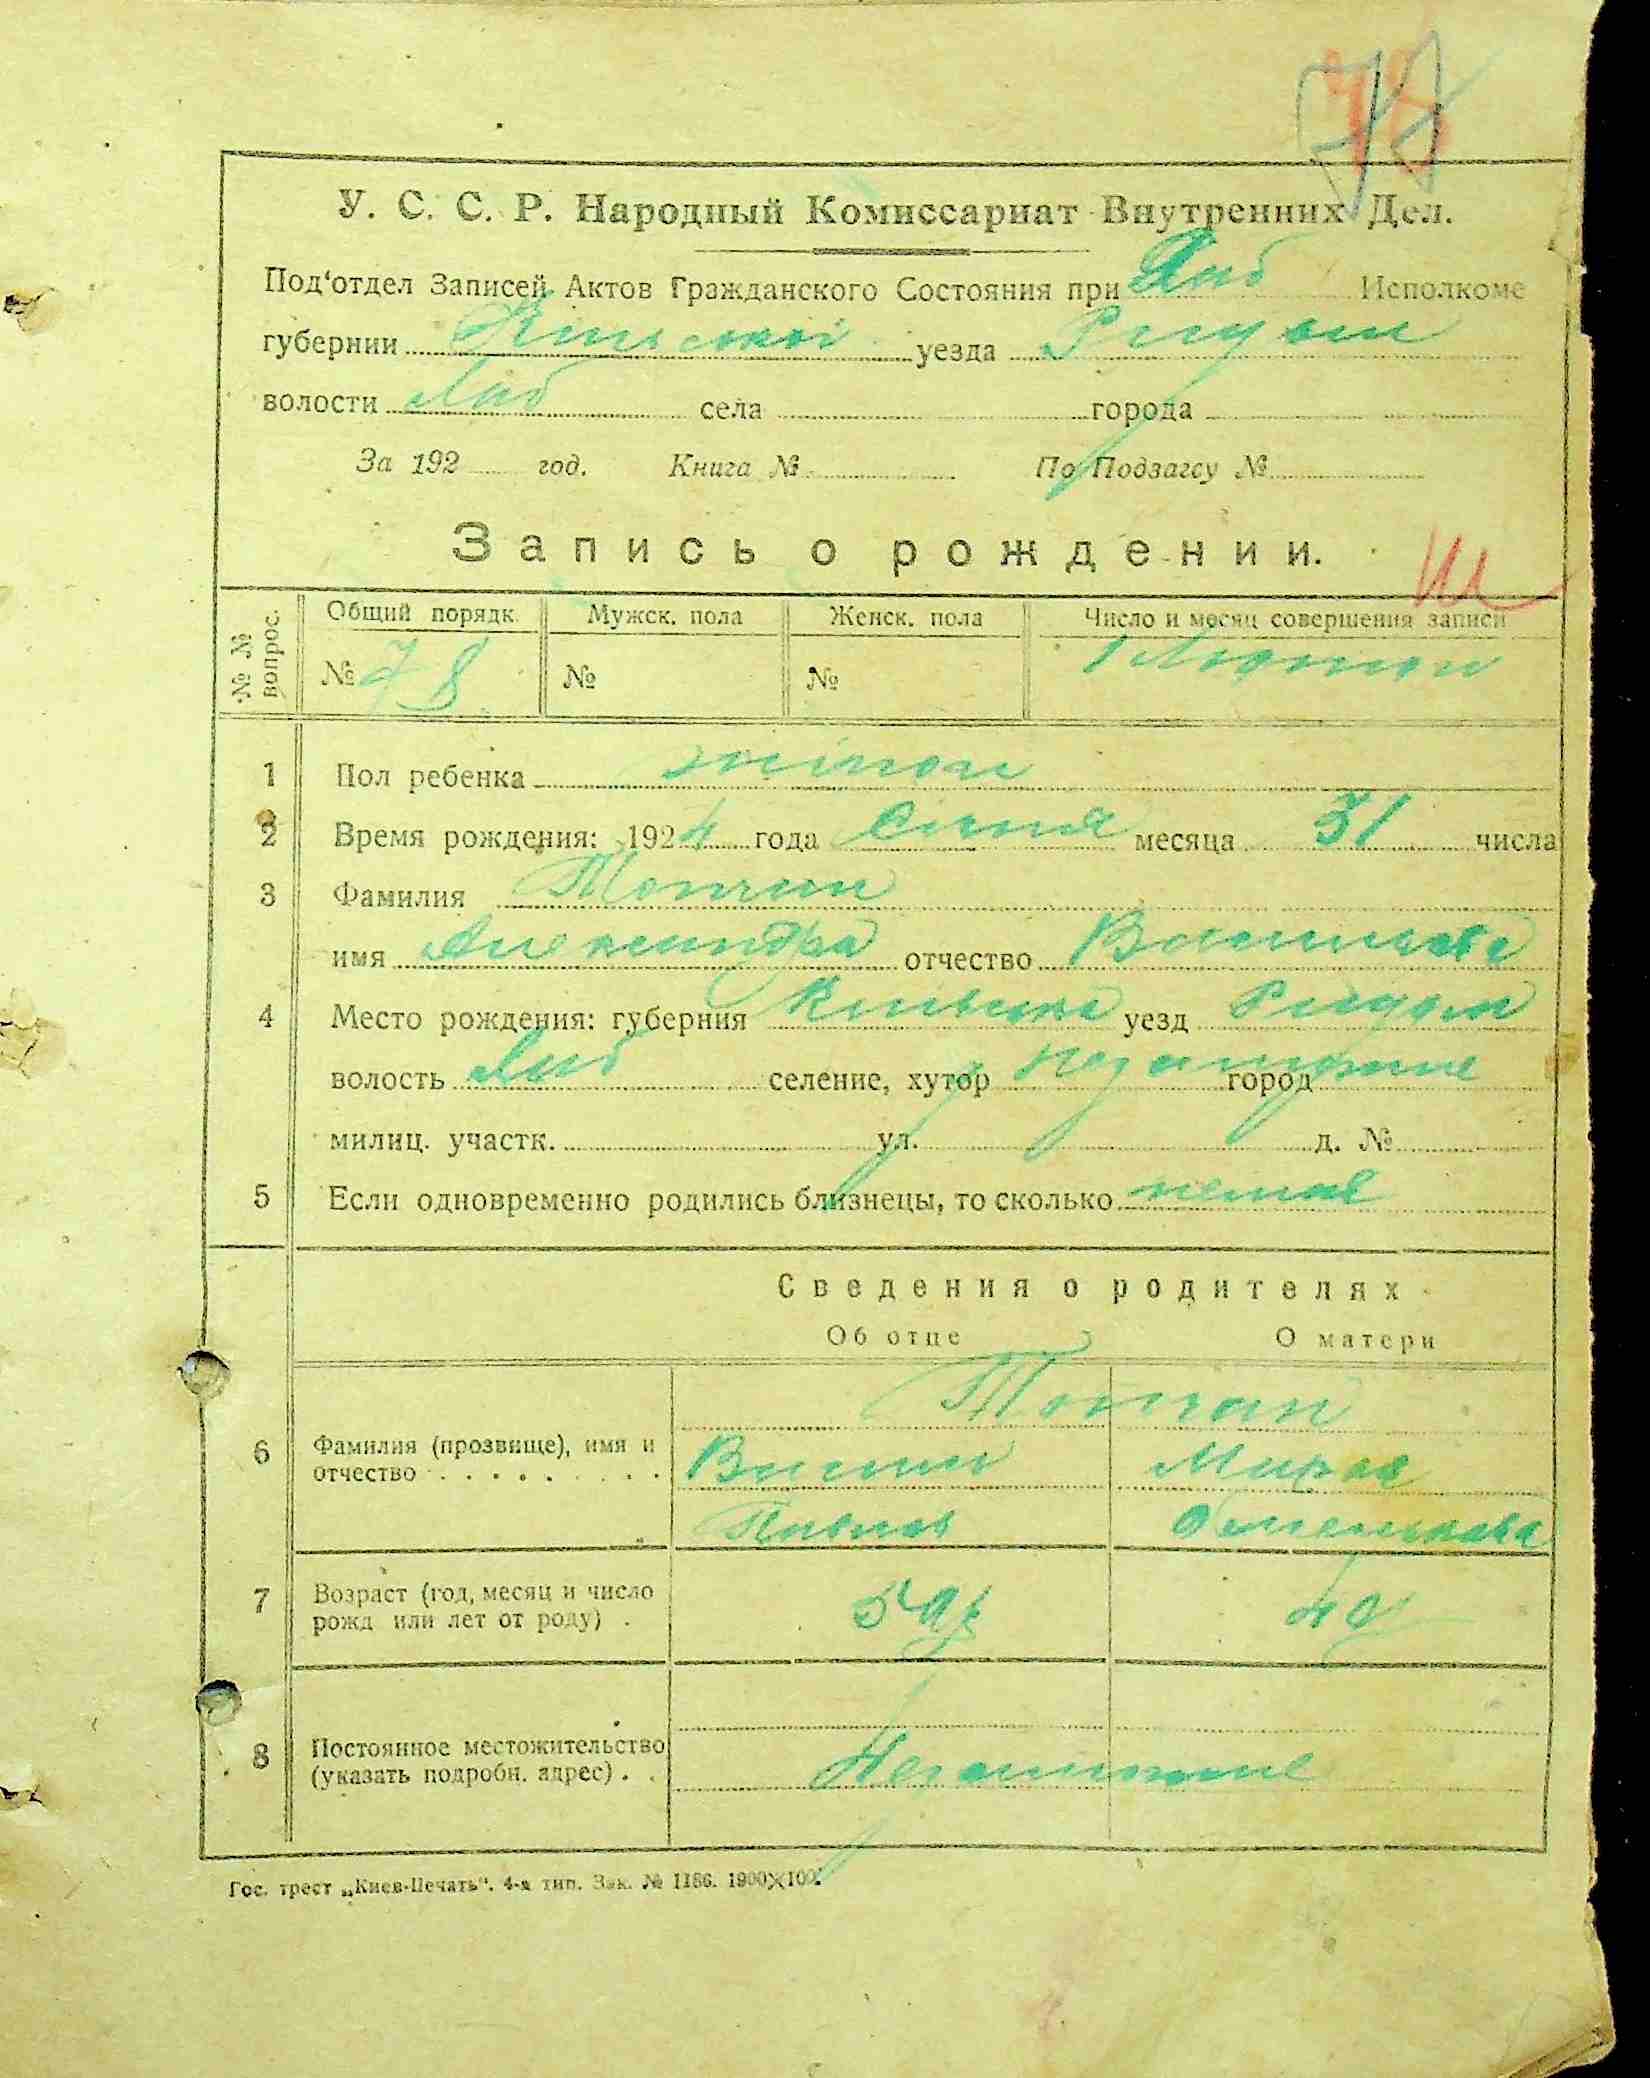 78
У. С. С. Р. Народный Комиссариат Внутренних Дел.
Под‘отдел Записей Актов Гражданского Состояния при Хаб Исполкоме
губернии Київської уезда Радом
волости Хаб села города
За 192 год. Книга № По Подзагсу №
Запись о рождении.
№ № вопрос. Общий порядк. Мужск. пола Женск. пола Число и месяц совершения записи
№ 78 № № 1 Лютого
1 Пол ребенка жіноча
2 Время рождения: 1924 года Січня месяца 31 числа
3 Фамилия Топчан
имя Александра отчество Васильева
4 Место рождения: губерния Київська уезд Радом
волость Хаб селение, хутор город
милиц. участк. ул. д. №
5 Если одновременно родились близнецы, то сколько немає
Сведения о родителях
Об отце О матери
Топчан
6 Фамилия (прозвище), имя и отчество
Васил Мария
Павлов
7 Возраст (год, месяц и число рожд или лет от роду) . 40
8 Постоянное местожительство (указать подробн. адрес) . .
Гос. трест „Киев-Печать“. 4-я тип. Зак. № 1186. 1900×100.